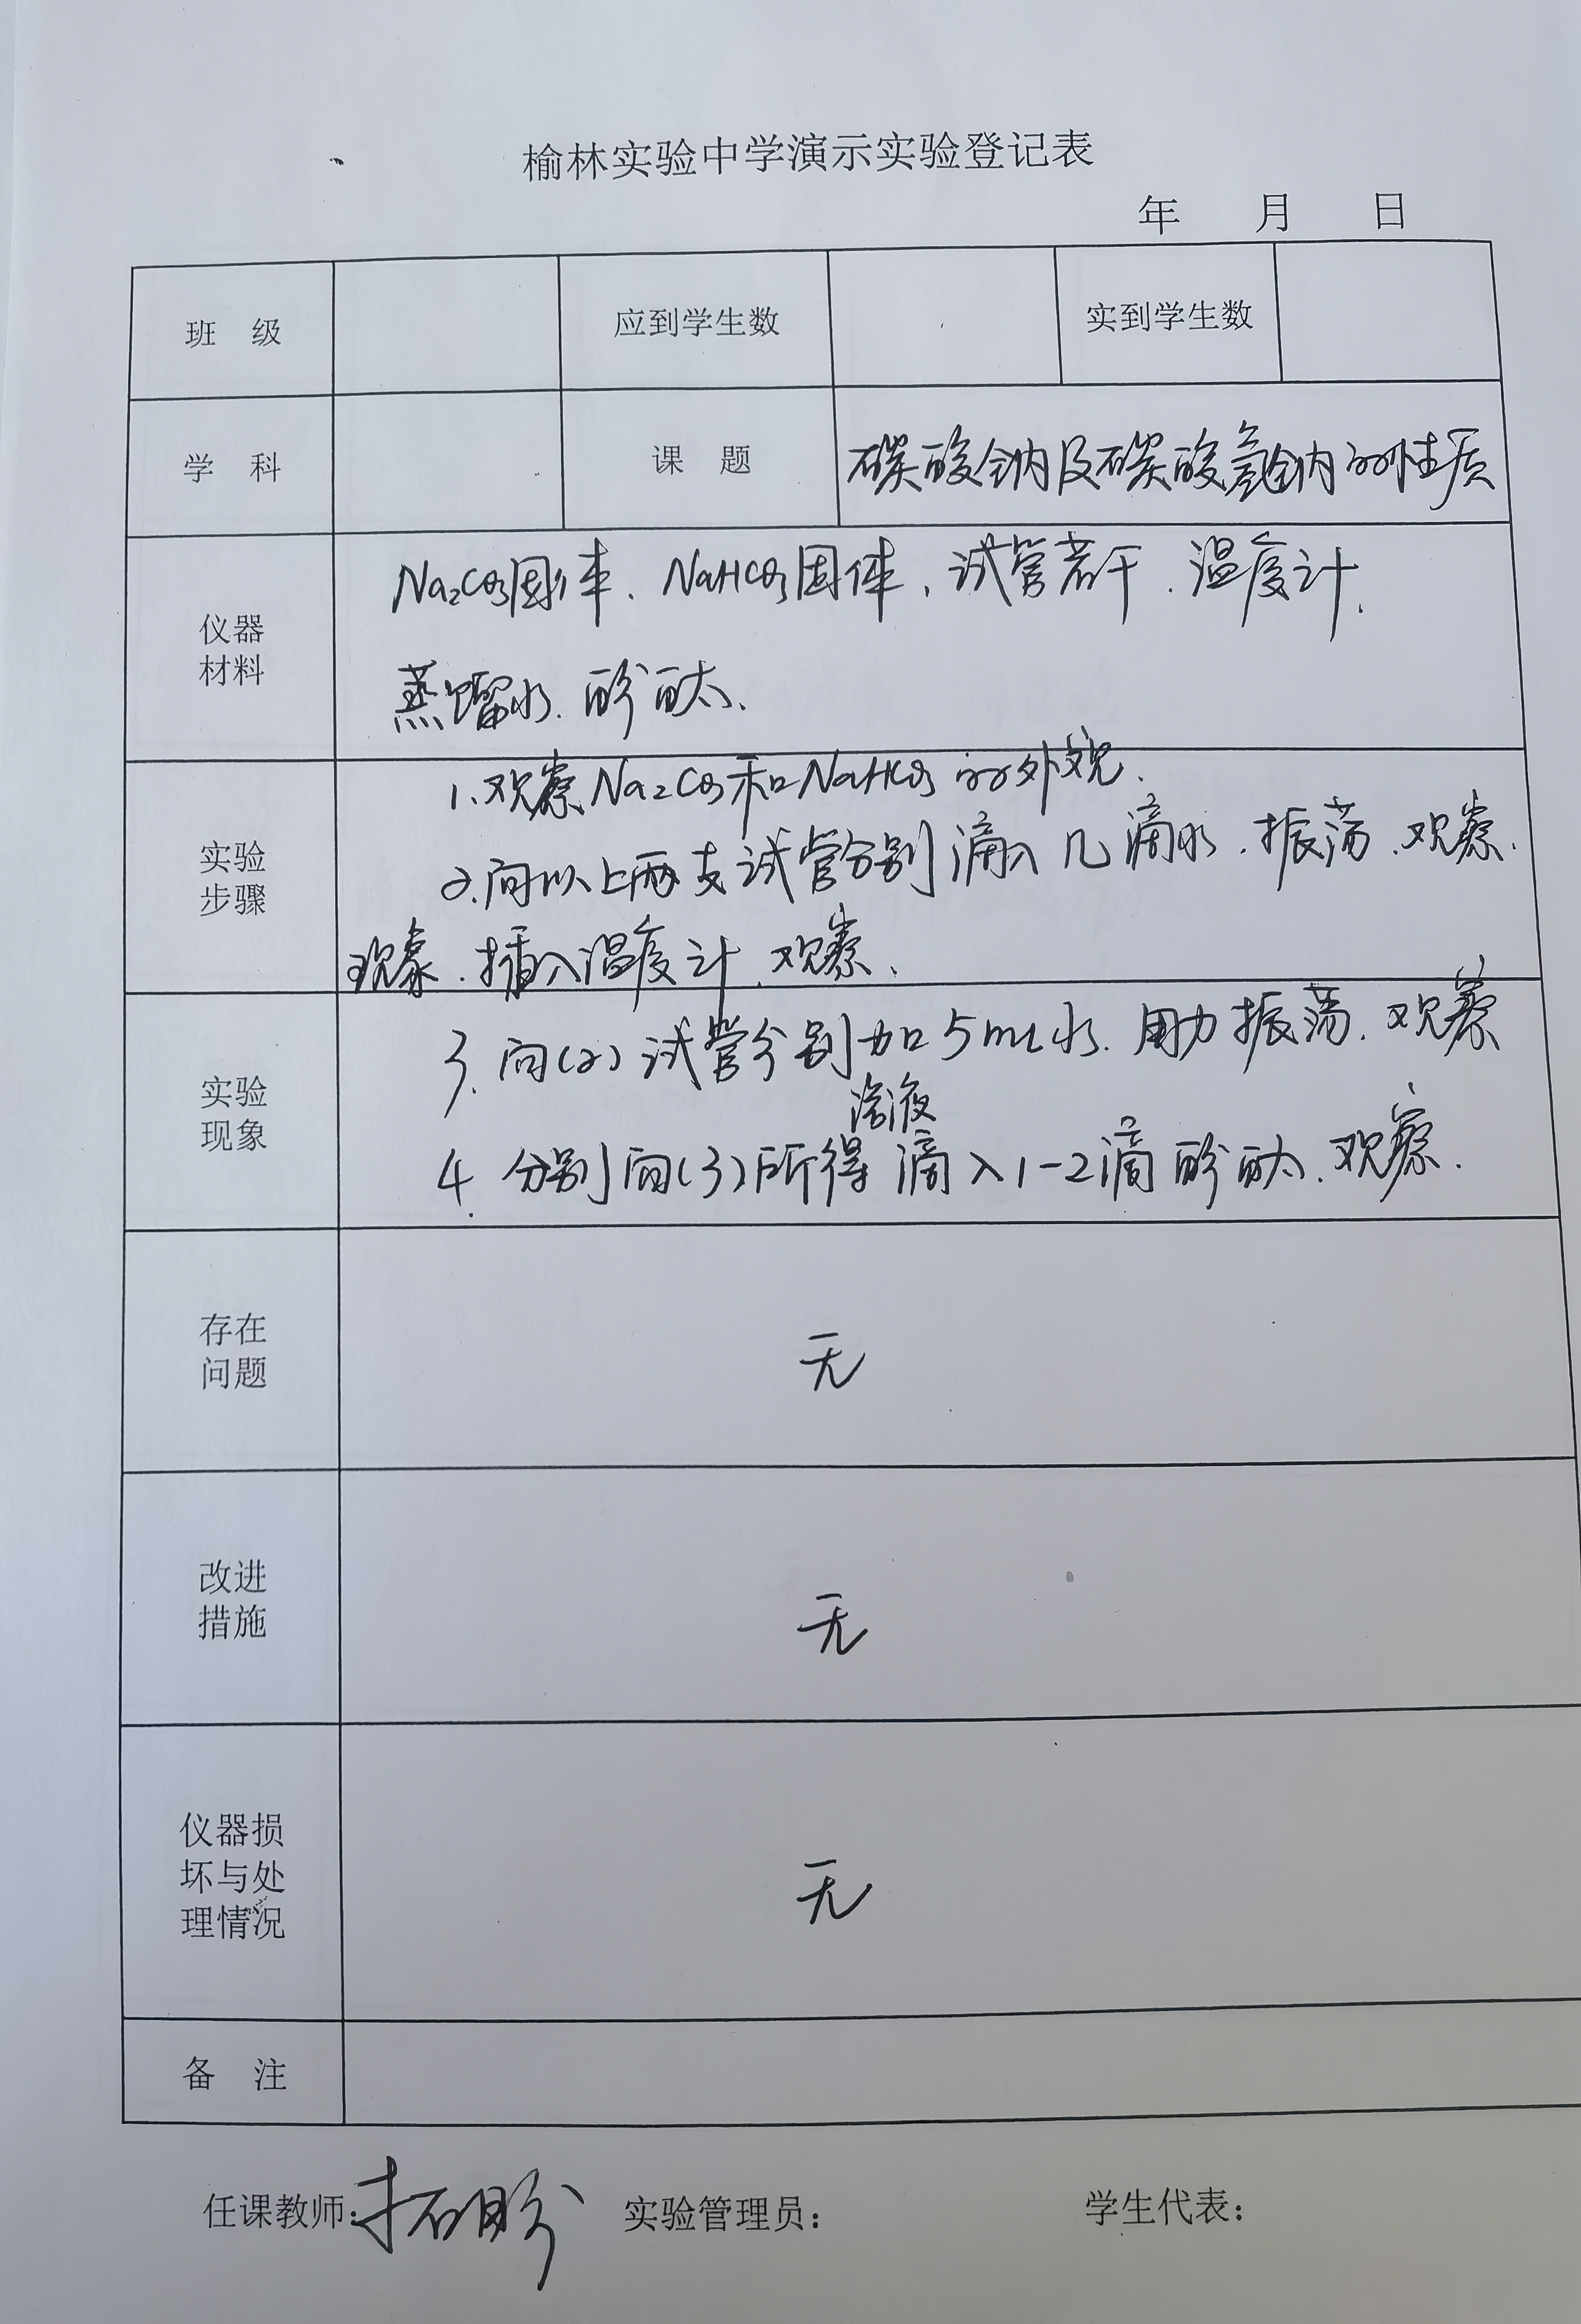 榆林实验中学演示实验登记表
年 月 日
班 级 应到学生数 实到学生数
学 科 课 题 碳酸钠及碳酸氢钠的性质
仪器
材料
Na₂CO₃固体、NaHCO₃固体、试管若干、温度计、
蒸馏水、酚酞、
实验
步骤
1、观察Na₂CO₃和NaHCO₃的外观、
2、向以上两支试管分别滴入几滴水、振荡、观察、
现象、插入温度计、观察、
实验
现象
3、向(2)试管分别加5mL水、用力振荡、观察
溶液
4、分别向(3)所得滴入1-2滴酚酞、观察、
存在
问题
无
改进
措施
无
仪器损
坏与处
理情况
无
备 注
任课教师：拓盼 实验管理员： 学生代表：